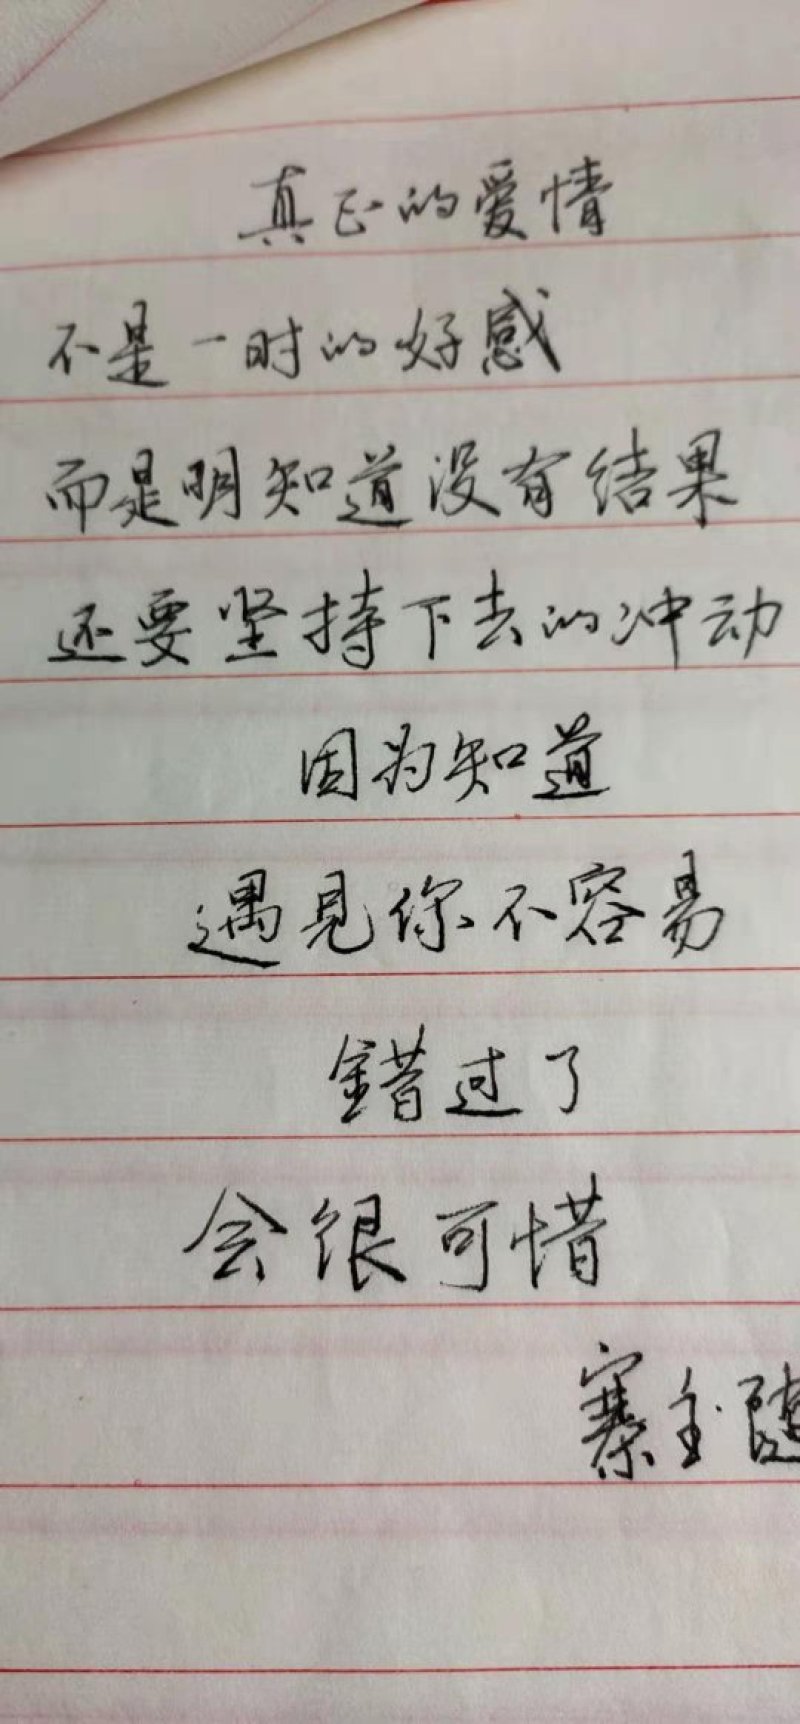 真正的爱情
不是一时的好感
而是明知道没有结果
还要坚持下去的冲动
因为知道
遇见你不容易
错过了
会很可惜
寨主随